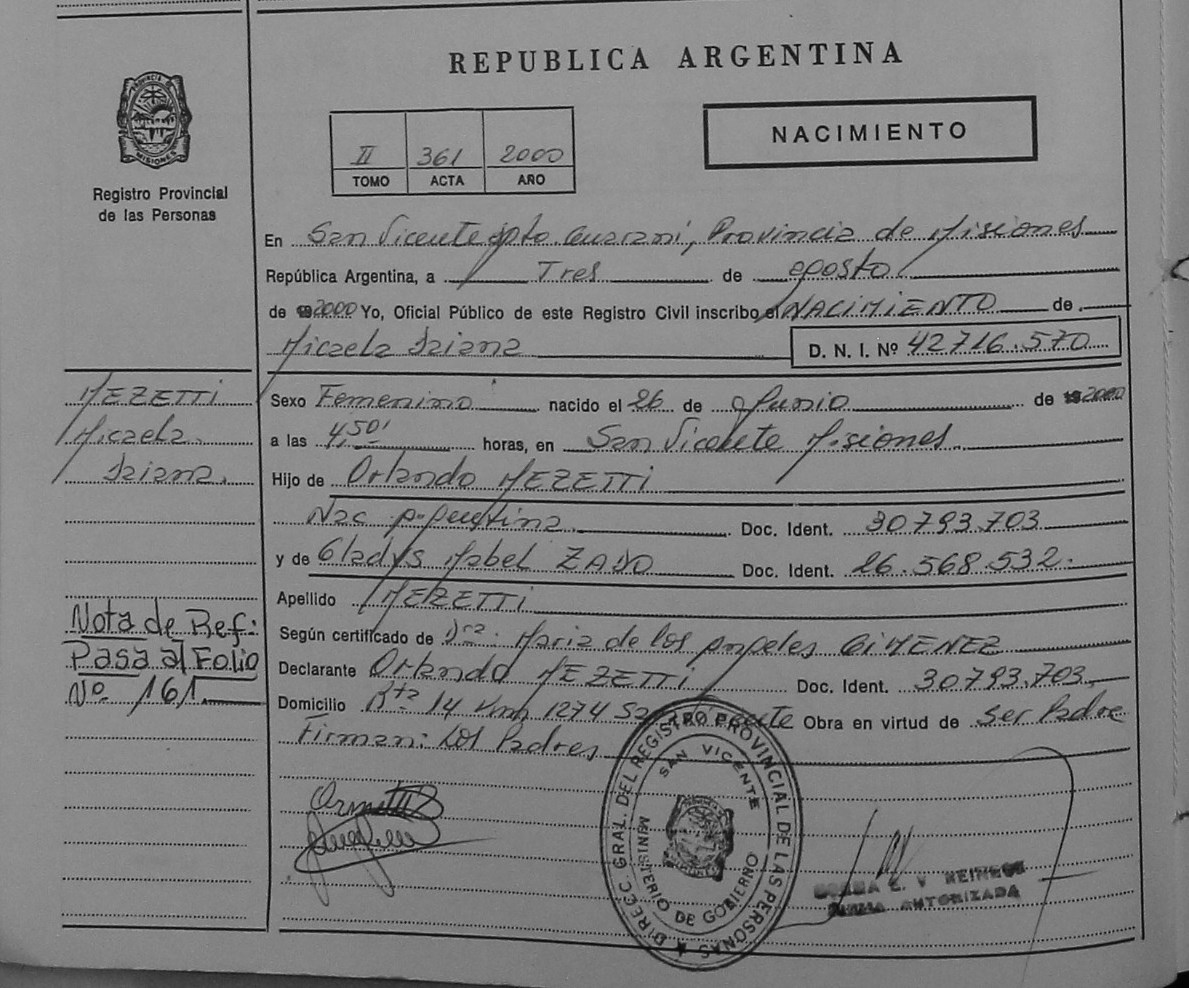 REPUBLICA ARGENTINA
PROVINCIA DE MISIONES
Registro Provincial
de las Personas
NACIMIENTO
II 361 2000
TOMO ACTA AÑO
En San Vicente Dpto. Guaraní, Provincia de Misiones
República Argentina, a Tres de agosto
de 2000 Yo, Oficial Público de este Registro Civil inscribo el NACIMIENTO de
Micaela Daiana D. N. I. Nº 42716.570
MEZETTI
Micaela
Daiana.
Sexo Femenino nacido el 26 de Junio de 2000
a las 4,50' horas, en San Vicente Misiones
Hijo de Orlando MEZETTI
Nac Argentina Doc. Ident. 30.793.703
y de Gladys Mabel Doc. Ident. 26.568.532.
Apellido MEZETTI
Según certificado de Dra. Maria de los Angeles GIMENEZ
Declarante Orlando MEZETTI Doc. Ident. 30793.703,
Domicilio Rta 14 Km 1274 San Vicente Obra en virtud de ser Padre
Firman: los Padres
Nota de Ref:
Pasa al Folio
Nº 161
DIRECC. GRAL. DEL REGISTRO PROVINCIAL DE LAS PERSONAS
SAN VICENTE
MINISTERIO DE GOBIERNO
FIRMA AUTORIZADA